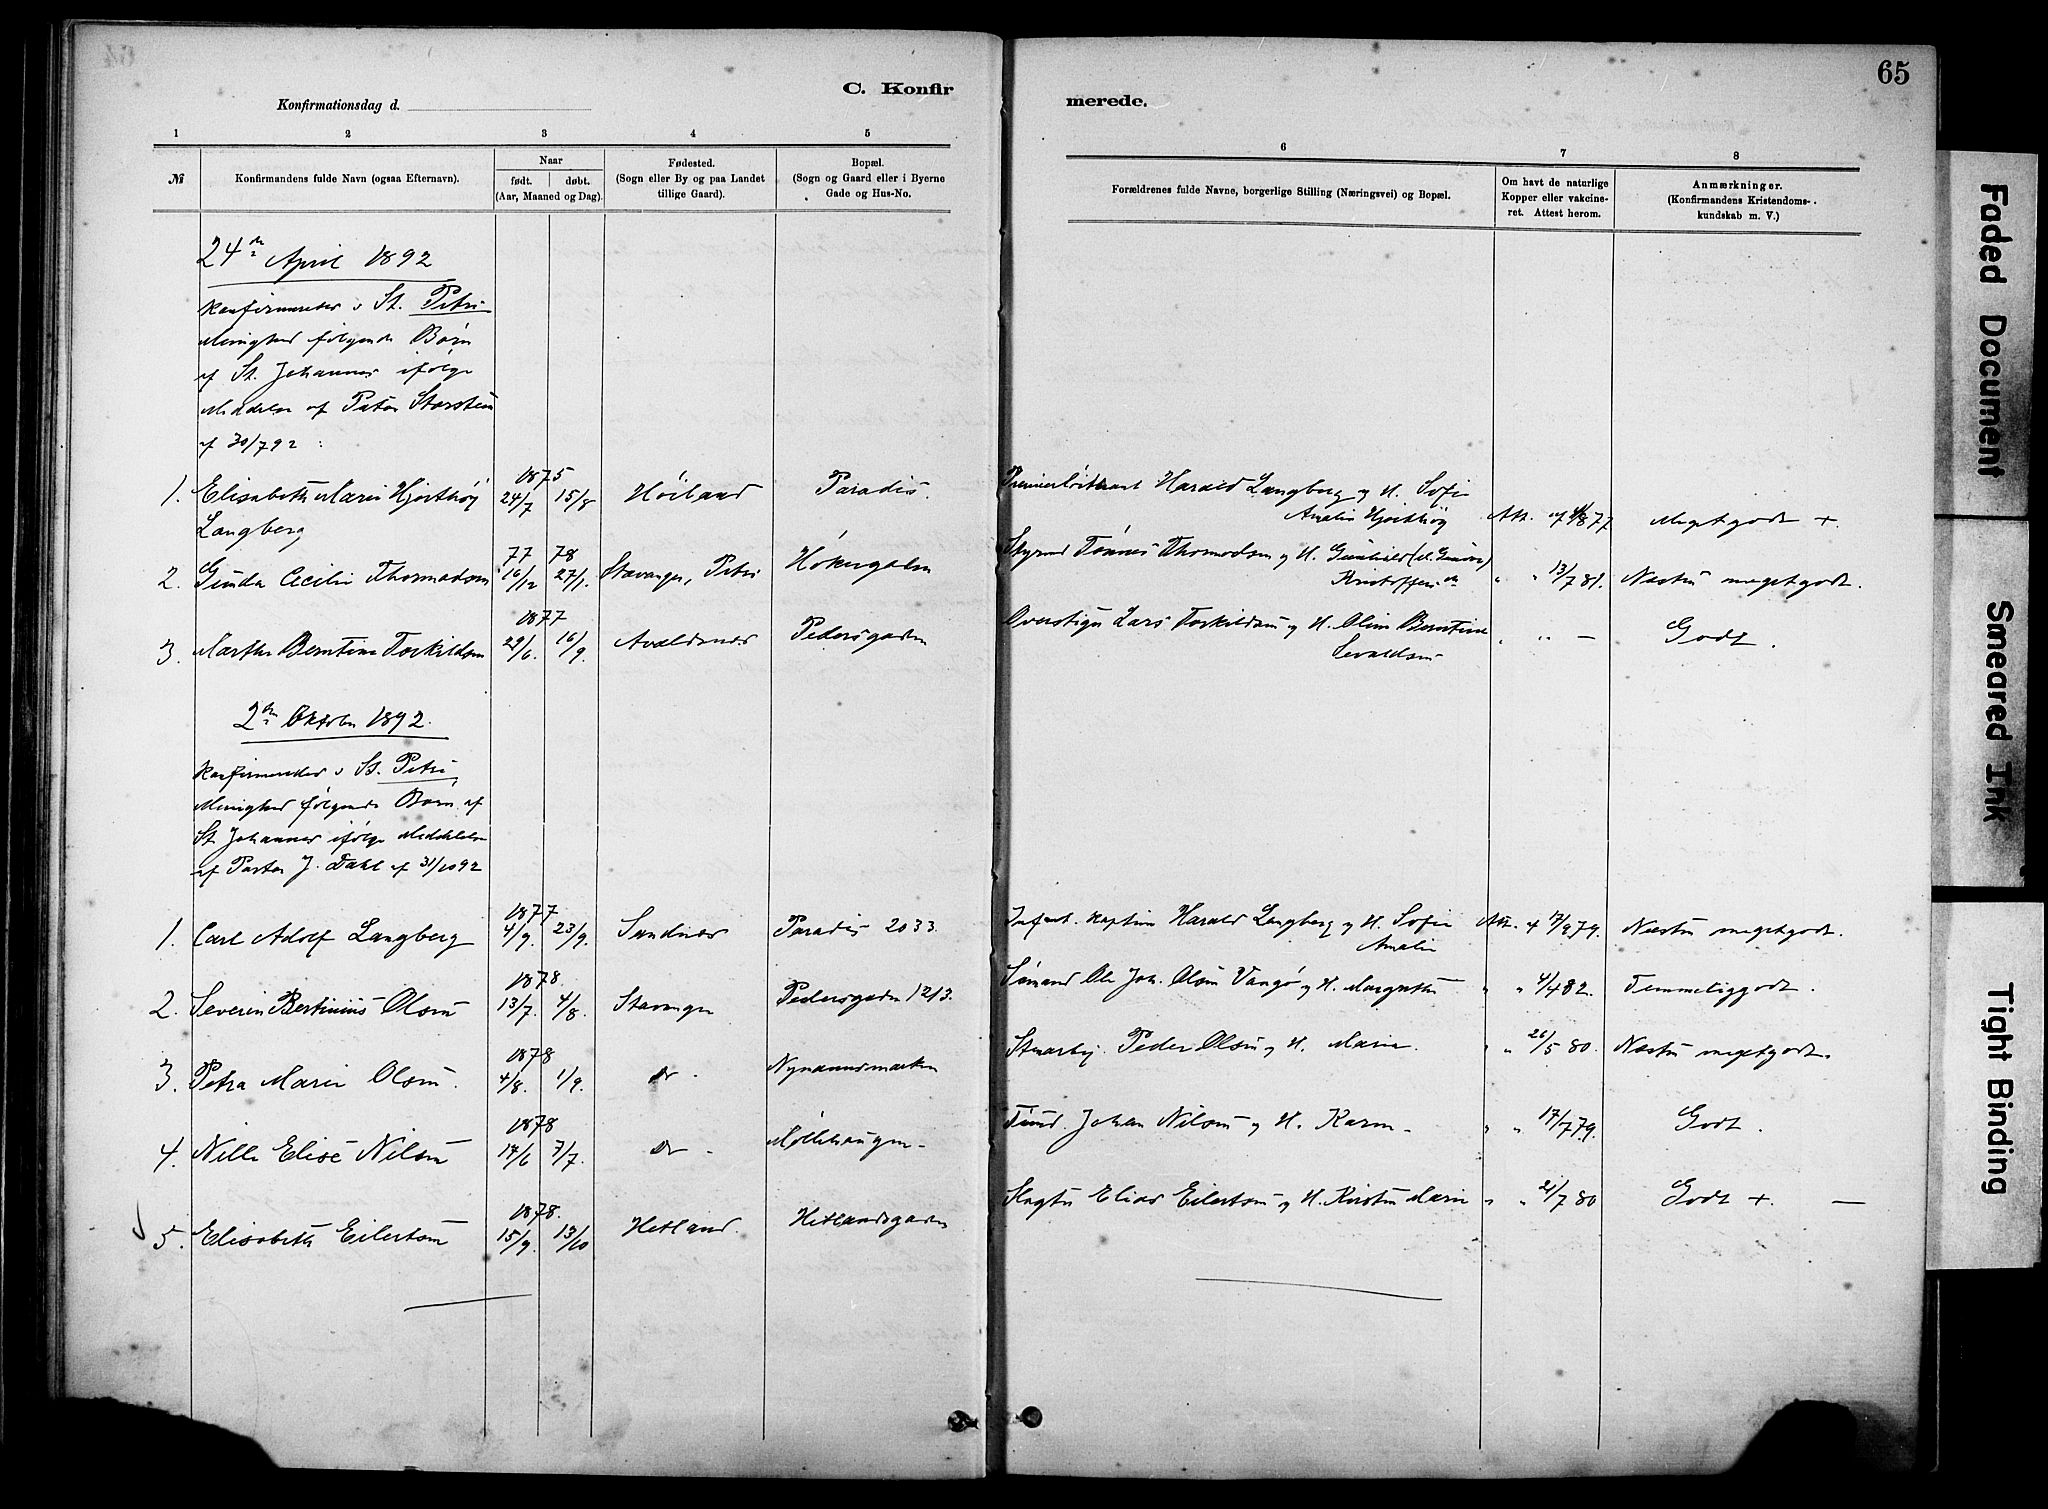 65
C. Konfirmerede.
Konfirmationsdag d.
1 2 3 4 5 6 7 8
№
Konfirmandens fulde Navn (ogsaa Efternavn).
Naar
født. døbt.
(Aar, Maaned og Dag).
Fødested.
(Sogn eller By og paa Landet
tillige Gaard).
Bopæl.
(Sogn og Gaard eller i Byerne
Gade og Hus-No.
Forældrenes fulde Navne, borgerlige Stilling (Næringsvei) og Bopæl.
Om havt de naturlige
Kopper eller vakcine-
ret. Attest herom.
Anmærkninger.
(Konfirmandens Kristendoms-
kundskab m. V.)
24de April 1892
Konfirmeredes i St. Petri
Menighed følgende Børn
af St. Johannes ifølge
Meddelse af Pastor Storsten
af 30/7 92 :
1. Elisabeth Marie Hjorthøy 1875 24/7 15/8 Høiland Paradis. Premierløitnant Harald Langberg og H. Sofie
Langberg Amalie Hjorthøy Att. af 877 Megetgodt +
2. Gunda Cecilie Thormodsen 77 16/12 78 27/1. Stavanger, Petri Høkergaden Styrmd Tønnes Thormodsen og H. Gunhild
Kristoffersen " " 13/7 81. Næsten megetgodt.
3. Marthe Berntine Torkildsen 1877 29/6. 16/9. Avaldsnes Pedersgaden Lars Torkildsen og H. Oline Berntine
Sevaldsen " " — Godt.
2den Oktober 1892.
Konfirmeredes i St. Petri
Menighed følgende Børn af
St Johannes ifølge Meddelelse
af Pastor J. Dahl af 31/10 92
1. Carl Adolf Langberg 1877 4/9. 23/9. Sandnes Paradis 2033. Infant. kaptein Harald Langberg og H. Sofie
Amalie Att. af 17/9 79. Næsten megetgodt.
2. Severin Bertinius Olsen 1878. 13/7. 4/8. Stavanger Pedersgaden 1213. Sømand Ole Joh. Olsen Vangø og H. Margrethe " " 4/4 82. Temmeliggodt.
3. Petra Marie Olsen. 1878 4/8. 1/9. do. Nymannsmarken Peder Olsen og H. Marie. " " 26/5 80. Næsten megetgodt.
4. Nille Elise Nilsen 1878 17/6 7/7. do. Møllehaugen Johan Nilsen og H. Karen " " 17/7 79. Godt.
5. Elisabeth Eilertsen 1878. 15/9. 13/10 Hetland. Hetlandsgaden Slagter Elias Eilertsen og H. Kirsten Marie " " 21/7 80 Godt +. —
Faded Document
Smeared Ink
Tight Binding